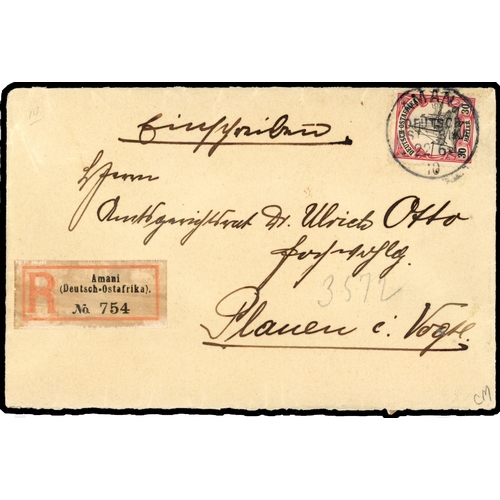 Einschreiben.
AMANI
DEUTSCH-
22/6
10
DEUTSCH-OSTAFRIKA
30
30
HELLER
Herrn
Amtsgerichtsrat Dr. Ulrich Otto
Hochwohlg.
R
Amani
(Deutsch-Ostafrika).
No. 754
3572
Plauen i. Vogtl.
CM